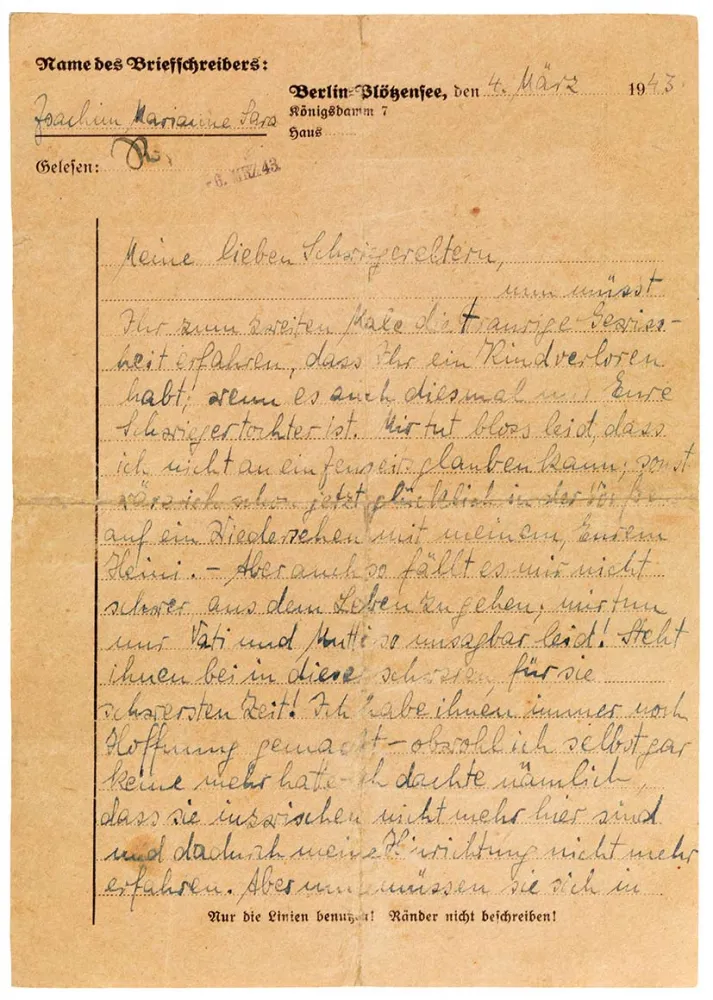 Name des Briefschreibers:
Berlin-Plötzensee, den 4. März 1943
Joachim Marianne Sara
Königsdamm 7
Haus
Gelesen: R.
-6. MRZ. 43
Meine lieben Schwiegereltern,
nun müsst
Ihr zum zweiten Male die traurige Gewiss-
heit erfahren, dass Ihr ein Kind verloren
habt; wenn es auch diesmal nur Eure
Schwiegertochter ist. Mir tut bloss leid, dass
ich nicht an ein Jenseits glauben kann; sonst
wäre ich schon jetzt glücklich in der
auf ein Wiedersehen mit meinem, Eurem
Heini. – Aber auch so fällt es mir nicht
schwer aus dem Leben zu gehen; mir tun
nur Vati und Mutti so unsagbar leid! Steht
ihnen bei in dieser schweren, für sie
schwersten Zeit! Ich habe ihnen immer noch
Hoffnung gemacht – obwohl ich selbst gar
keine mehr hatte – ich dachte nämlich,
dass sie inzwischen nicht mehr hier sind
und dadurch meine Hinrichtung nicht mehr
erfahren. Aber nun müssen sie sich in
Nur die Linien benutzen! Ränder nicht beschreiben!